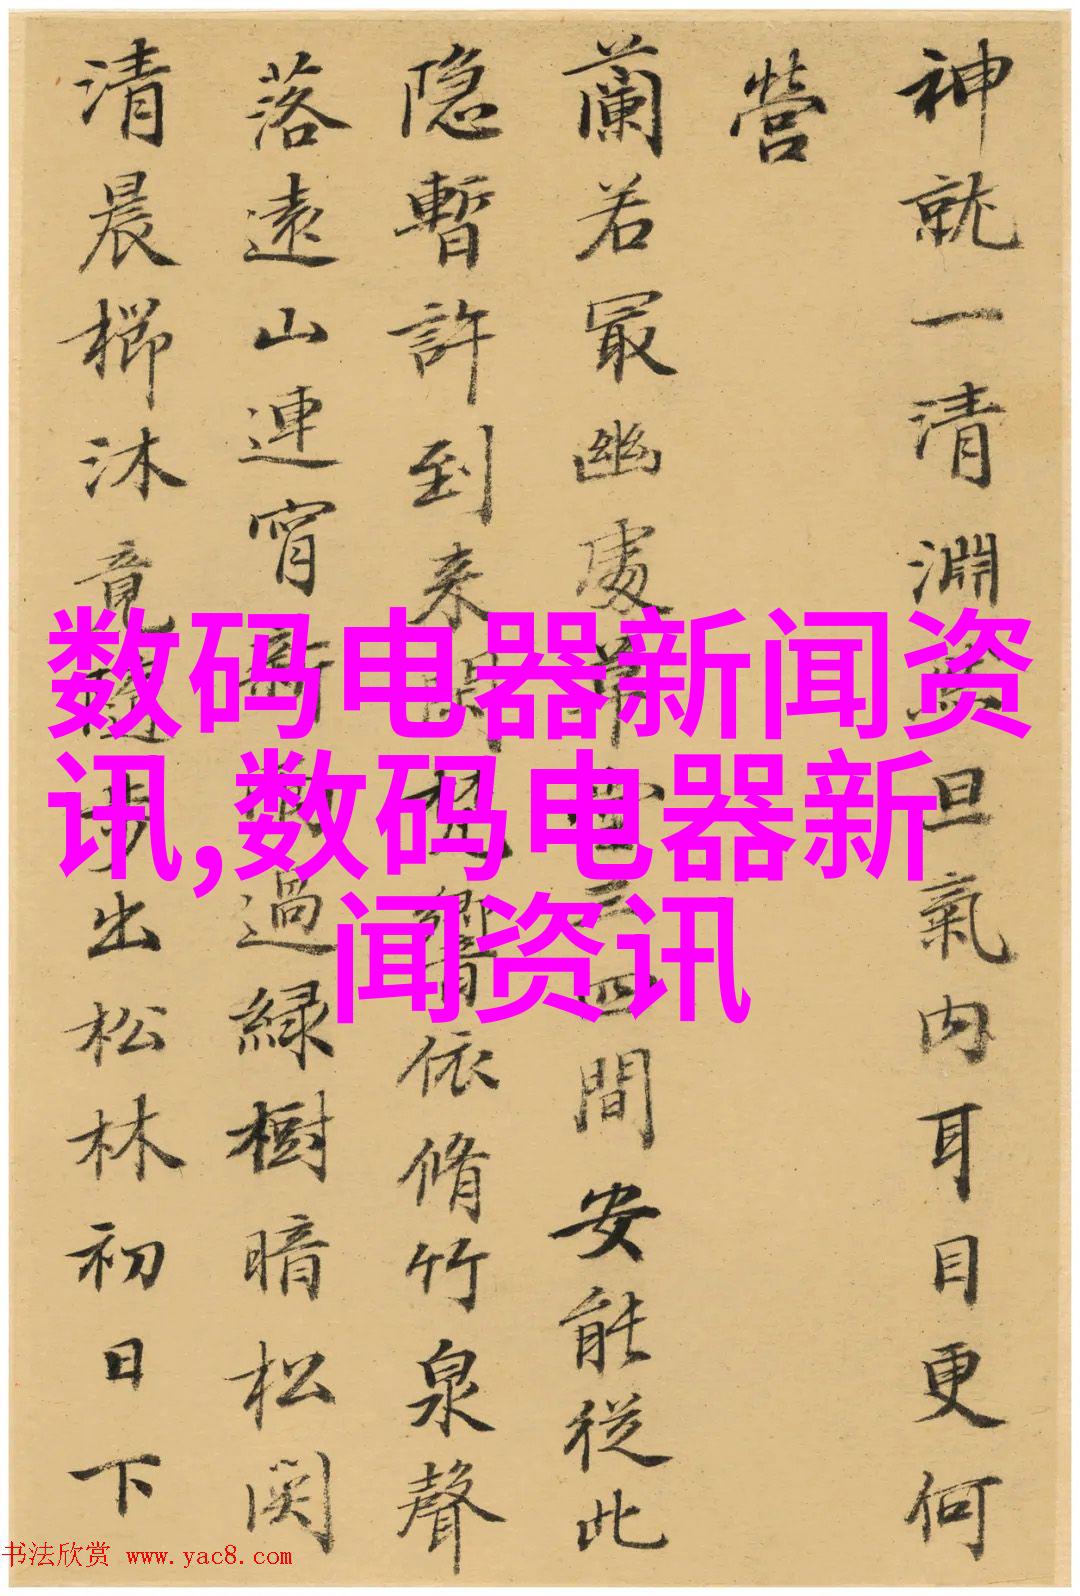 神就一清淵然旦氣內耳目更何
營
蘭若冣幽處茅堂三四間安能從此
隐暫許到来閑梵響依脩竹泉聲
落遠山連宵新雨過緑樹暗松関
清晨櫛沐竟随步出松林初日下
数码电器新闻资
讯,数码电器新
闻资讯
书法欣赏 www.yac8.com